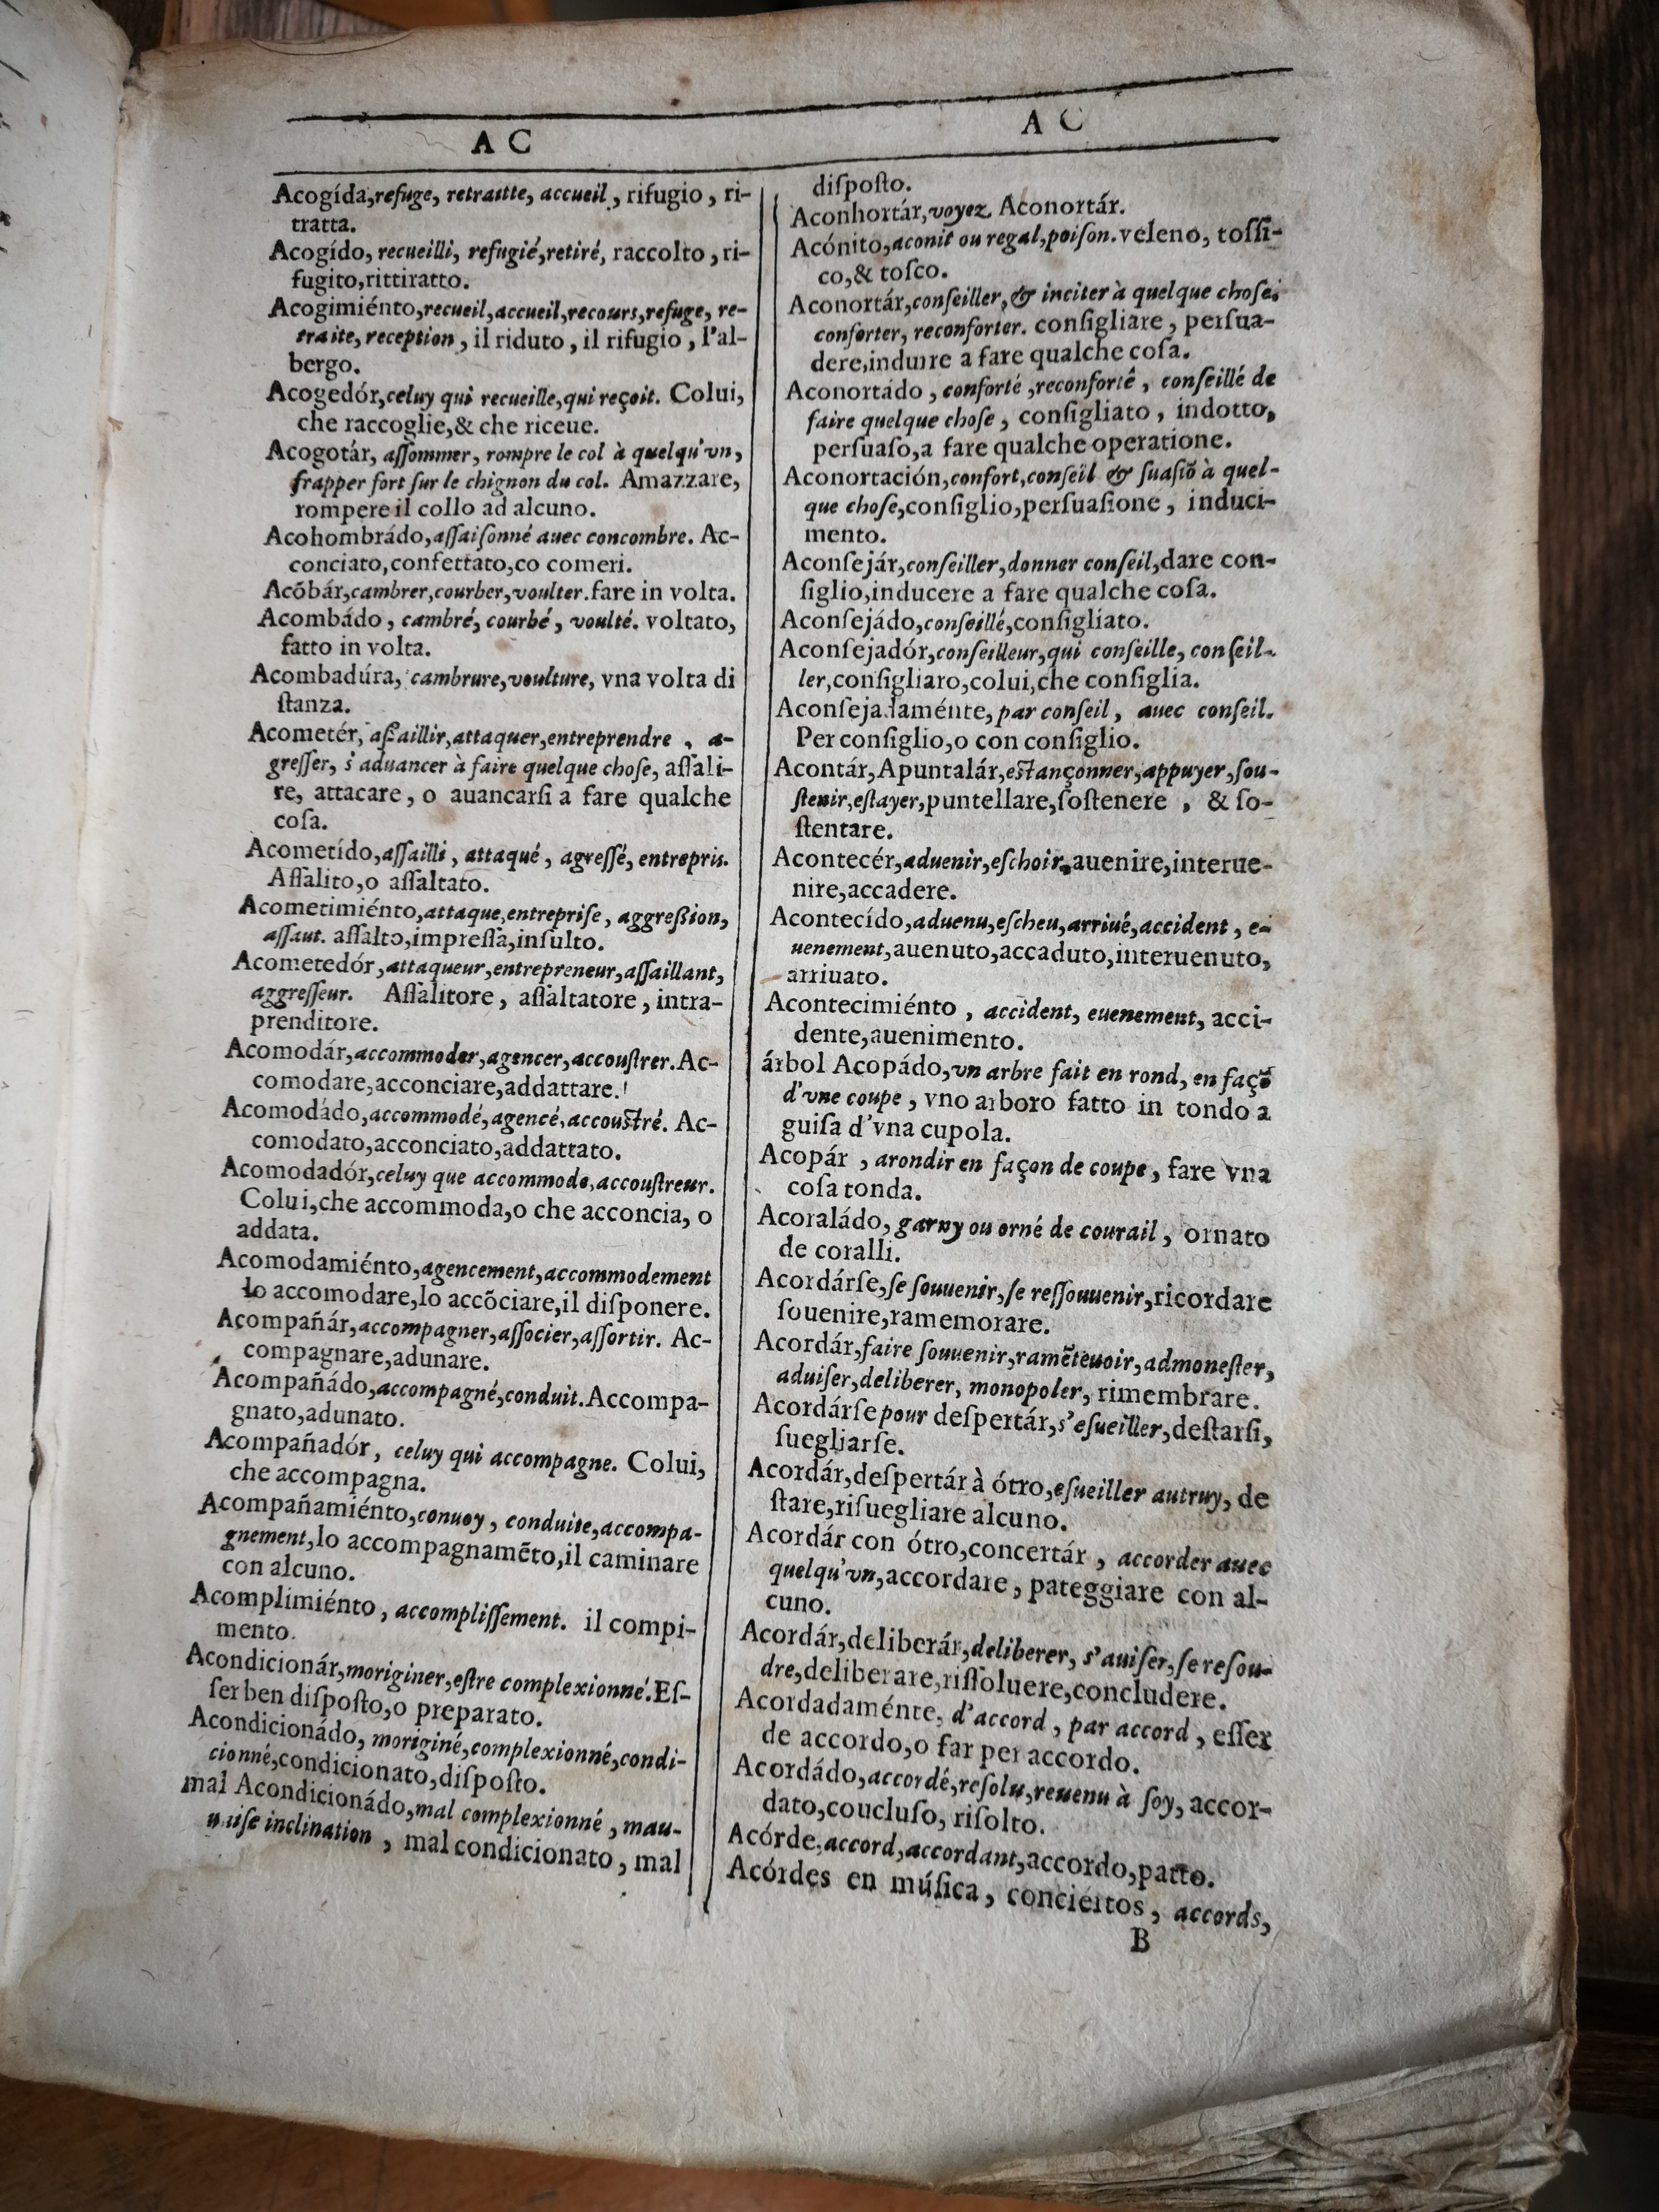 A C
Acogída,refuge, retraitte, accueil, rifugio, ri-
tratta.
Acogído, recueilli, refugié,retiré, raccolto, ri-
fugito,rittiratto.
Acogimiénto,recueil,accueil,recours,refuge, re-
traite, reception, il riduto, il rifugio, l'al-
bergo.
Acogedór,celuy qui recueille,qui reçoit. Colui,
che raccoglie,& che riceue.
Acogotár, aſſommer, rompre le col à quelqu'vn,
frapper fort ſur le chignon du col. Amazzare,
rompere il collo ad alcuno.
Acohombrádo,aſſaiſonné auec concombre. Ac-
conciato,confettato,co comeri.
Acõbár,cambrer,courber,voulter.fare in volta.
Acombádo, cambré, courbé, voulté. voltato,
fatto in volta.
Acombadúra, cambrure,voulture, vna volta di
ſtanza.
Acometér, aſſaillir,attaquer,entreprendre, a-
greſſer, s'aduancer à faire quelque choſe, aſſali-
re, attacare, o auancarſi a fare qualche
coſa.
Acometído,aſſailli, attaqué, agreſſé, entrepris.
Aſſalito,o aſſaltato.
Acometimiénto,attaque,entrepriſe, aggreßion,
aſſaut. aſſalto,impreſſa,inſulto.
Acometedór,attaqueur,entrepreneur,aſſaillant,
aggreſſeur. Aſſalitore, aſſaltatore, intra-
prenditore.
Acomodár,accommoder,agencer,accouſtrer.Ac-
comodare,acconciare,addattare.
Acomodádo,accommodé,agencé,accouſtré. Ac-
comodato,acconciato,addattato.
Acomodadór,celuy que accommode,accouſtreur.
Colui,che accommoda,o che acconcia, o
addata.
Acomodamiénto,agencement,accommodement
lo accomodare,lo accõciare,il diſponere.
Acompañár,accompagner,aſſocier,aſſortir. Ac-
compagnare,adunare.
Acompañádo,accompagné,conduit.Accompa-
gnato,adunato.
Acompañadór, celuy qui accompagne. Colui,
che accompagna.
Acompañamiénto,conuoy, conduite,accompa-
gnement,lo accompagnamẽto,il caminare
con alcuno.
Acomplimiénto, accompliſſement. il compi-
mento.
Acondicionár,moriginer,eſtre complexionné.Eſ-
ſer ben diſpoſto,o preparato.
Acondicionádo, moriginé,complexionné,condi-
cionné,condicionato,diſpoſto.
mal Acondicionádo,mal complexionné, mau-
uaiſe inclination, mal condicionato, mal
A C
diſpoſto.
Aconhortár,voyez Aconortár.
Acónito,aconit ou regal,poiſon.veleno, toſſi-
co,& toſco.
Aconortár,conſeiller,& inciter à quelque choſe:
conforter, reconforter. conſigliare, perſua-
dere,indurre a fare qualche coſa.
Aconortádo, conforté,reconforté, conſeillé de
faire quelque choſe, conſigliato, indotto,
perſuaſo,a fare qualche operatione.
Aconortación,confort,conſeil & ſuaſiõ à quel-
que choſe,conſiglio,perſuaſione, induci-
mento.
Aconſejár,conſeiller,donner conſeil,dare con-
ſiglio,inducere a fare qualche coſa.
Aconſejádo,conſeillé,conſigliato.
Aconſejadór,conſeilleur,qui conſeille, conſeil-
ler,conſigliaro,colui,che conſiglia.
Aconſejadaménte,par conſeil, auec conſeil.
Per conſiglio,o con conſiglio.
Acontár,Apuntalár,eſtançonner,appuyer,ſou-
ſtenir,eſtayer,puntellare,ſoſtenere, & ſo-
ſtentare.
Acontecér,aduenir,eſchoir,auenire,interue-
nire,accadere.
Acontecído,aduenu,eſcheu,arriué,accident, e-
uenement,auenuto,accaduto,interuenuto,
arriuato.
Acontecimiénto, accident, euenement, acci-
dente,auenimento.
árbol Acopádo,vn arbre fait en rond, en façõ
d'vne coupe, vno arboro fatto in tondo a
guiſa d'vna cupola.
Acopár, arondir en façon de coupe, fare vna
coſa tonda.
Acoraládo, garny ou orné de courail, ornato
de coralli.
Acordárſe,ſe ſouuenir,ſe reſſouuenir,ricordare
ſouenire,ramemorare.
Acordár,faire ſouuenir,ramẽteuoir,admoneſter,
aduiſer,deliberer, monopoler, rimembrare.
Acordárſe pour deſpertár,s'eſueiller,deſtarſi,
ſuegliarſe.
Acordár,deſpertár à ótro,eſueiller autruy, de
ſtare,riſuegliare alcuno.
Acordár con ótro,concertár, accorder auec
quelqu'vn,accordare, pateggiare con al-
cuno.
Acordár,deliberár,deliberer, s'auiſer,ſe reſou-
dre,deliberare,riſſoluere,concludere.
Acordadaménte, d'accord, par accord, eſſer
de accordo,o far per accordo.
Acordádo,accordé,reſolu,reuenu à ſoy, accor-
dato,coucluſo, riſolto.
Acórde,accord,accordant,accordo,patto.
Acórdes en múſica, conciértos, accords,
B